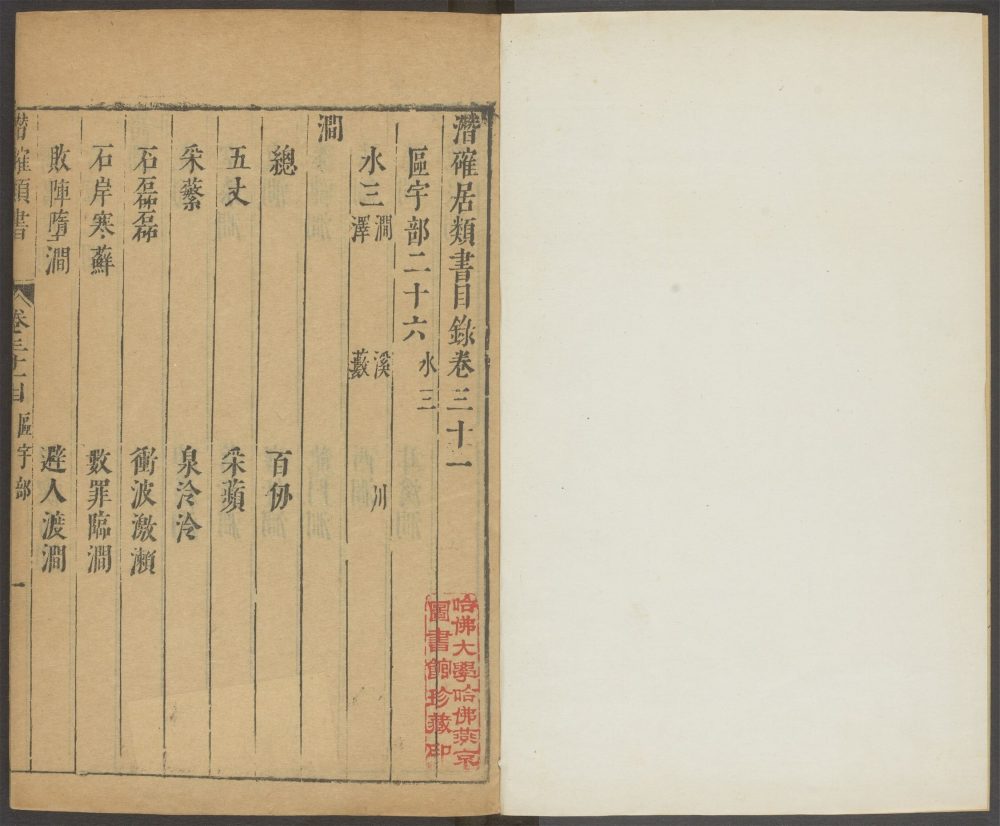 潛確居類書目錄卷三十一
區宇部二十六 水三
水三 澗 溪 川
澤 藪
澗
總 百仞
五丈 采蘋
采蘩 泉泠泠
石磊磊 衝波激瀨
石岸寒蘚 數罪臨澗
敗陣墮澗 避人渡澗
潛確類書 卷三十一目 區宇部 一
哈佛大學哈佛燕京
圖書館珍藏印